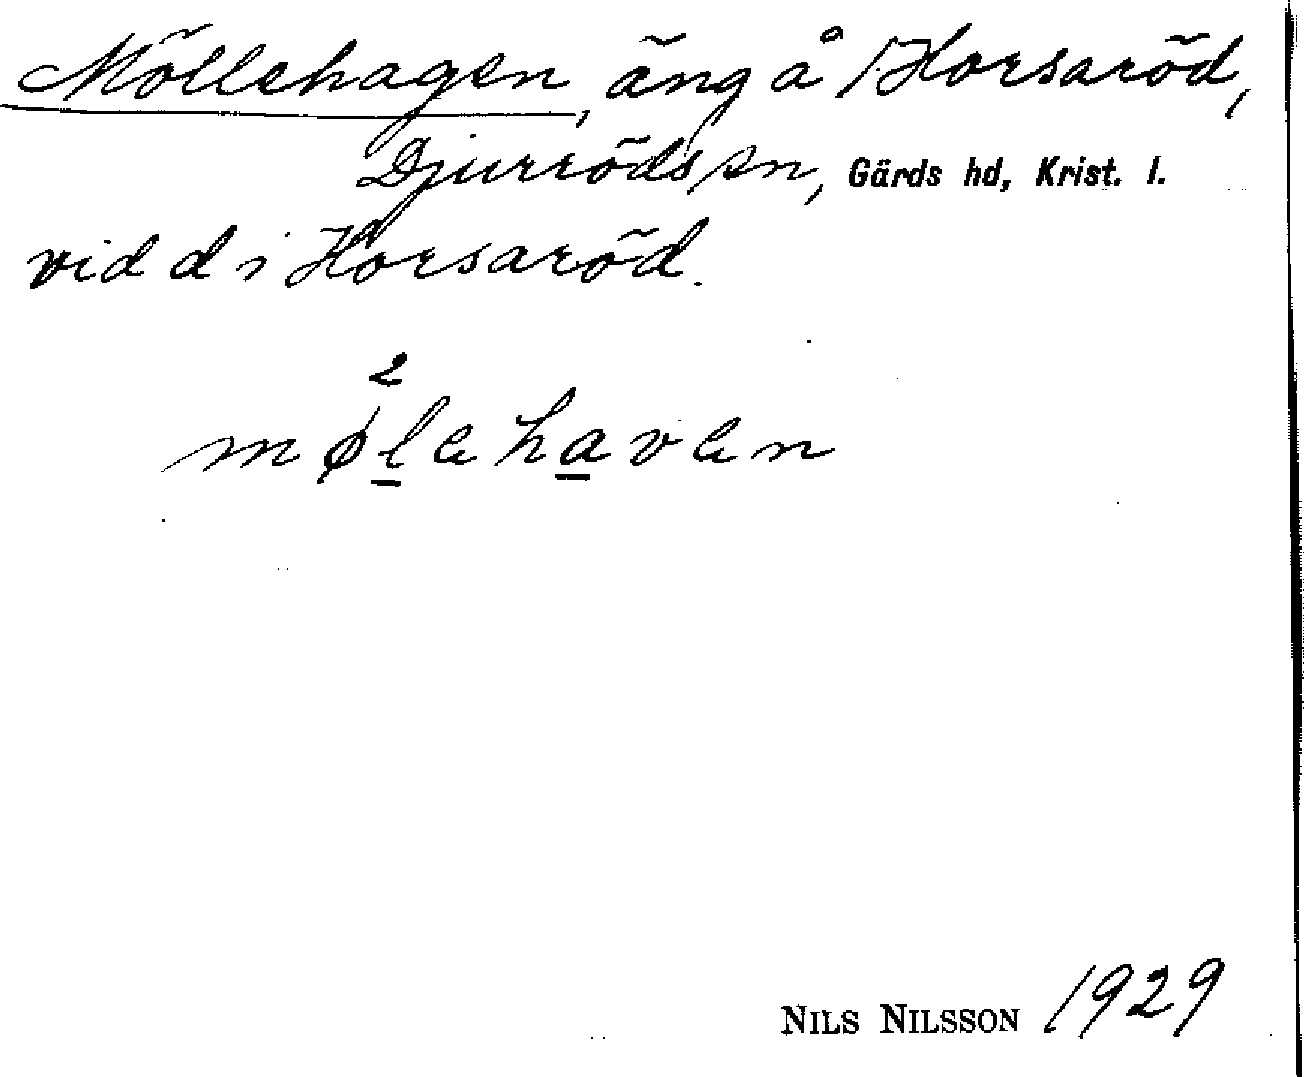 Möllehagen, äng å 1 Horsaröd,
Djurröds sn, Gärds hd, Krist. l.
vid d i Horsaröd.
2
mølehaven
NILS NILSSON 1929